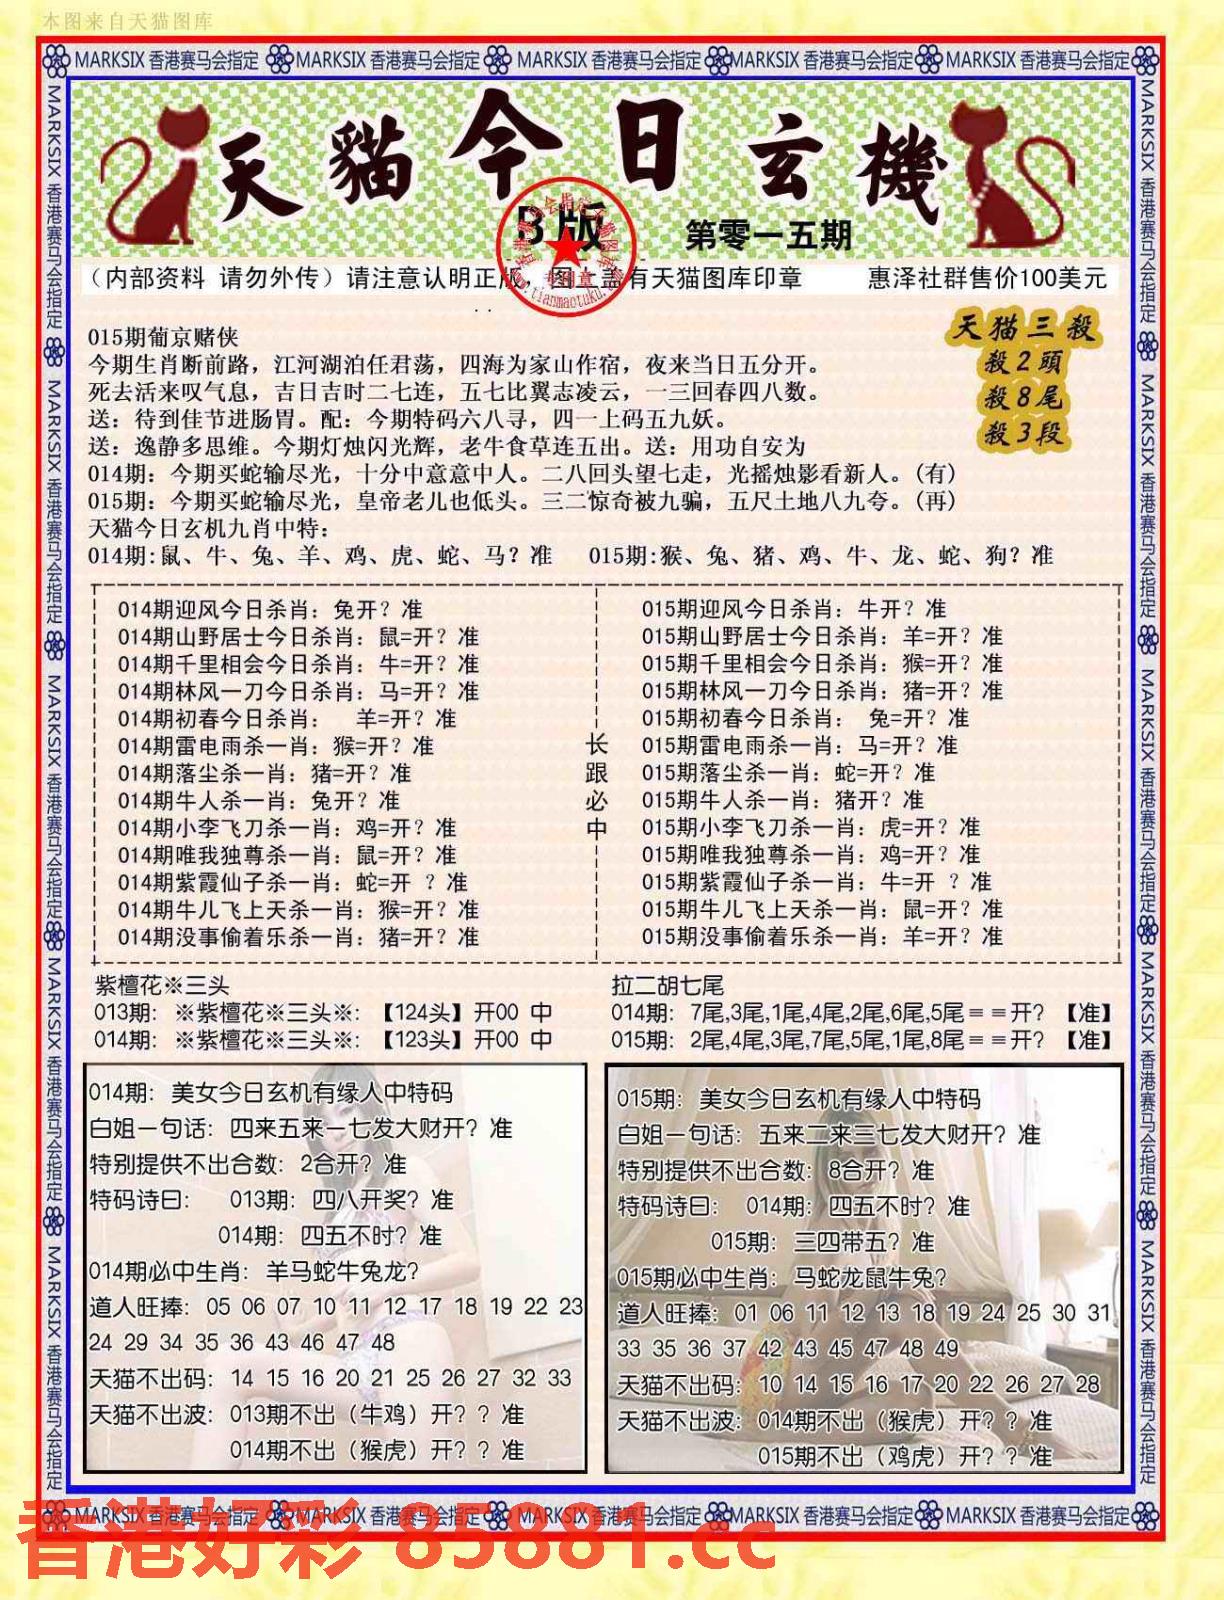 本图来自天猫图库
MARKSIX 香港赛马会指定 MARKSIX 香港赛马会指定 MARKSIX 香港赛马会指定 MARKSIX 香港赛马会指定 MARKSIX 香港赛马会指定
天貓今日玄機
B版
第零一五期
（内部资料 请勿外传）请注意认明正版，图上盖有天猫图库印章 惠泽社群售价100美元
天猫三殺
殺2頭
殺8尾
殺3段
015期葡京赌侠
今期生肖断前路，江河湖泊任君荡，四海为家山作宿，夜来当日五分开。
死去活来叹气息，吉日吉时二七连，五七比翼志凌云，一三回春四八数。
送：待到佳节进肠胃。配：今期特码六八寻，四一上码五九妖。
送：逸静多思维。今期灯烛闪光辉，老牛食草连五出。送：用功自安为
014期：今期买蛇输尽光，十分中意意中人。二八回头望七走，光摇烛影看新人。(有)
015期：今期买蛇输尽光，皇帝老儿也低头。三二惊奇被九骗，五尺土地八九夸。(再)
天猫今日玄机九肖中特：
014期:鼠、牛、兔、羊、鸡、虎、蛇、马？准 015期:猴、兔、猪、鸡、牛、龙、蛇、狗？准
014期迎风今日杀肖：兔开？准
014期山野居士今日杀肖：鼠=开？准
014期千里相会今日杀肖：牛=开？准
014期林风一刀今日杀肖：马=开？准
014期初春今日杀肖： 羊=开？准
014期雷电雨杀一肖：猴=开？准
014期落尘杀一肖：猪=开？准
014期牛人杀一肖：兔开？准
014期小李飞刀杀一肖：鸡=开？准
014期唯我独尊杀一肖：鼠=开？准
014期紫霞仙子杀一肖：蛇=开 ？准
014期牛儿飞上天杀一肖：猴=开？准
014期没事偷着乐杀一肖：猪=开？准
长跟必中
015期迎风今日杀肖：牛开？准
015期山野居士今日杀肖：羊=开？准
015期千里相会今日杀肖：猴=开？准
015期林风一刀今日杀肖：猪=开？准
015期初春今日杀肖： 兔=开？准
015期雷电雨杀一肖：马=开？准
015期落尘杀一肖：蛇=开？准
015期牛人杀一肖：猪开？准
015期小李飞刀杀一肖：虎=开？准
015期唯我独尊杀一肖：鸡=开？准
015期紫霞仙子杀一肖：牛=开 ？准
015期牛儿飞上天杀一肖：鼠=开？准
015期没事偷着乐杀一肖：羊=开？准
紫檀花※三头
013期：※紫檀花※三头※：【124头】开00 中
014期：※紫檀花※三头※：【123头】开00 中
拉二胡七尾
014期：7尾,3尾,1尾,4尾,2尾,6尾,5尾＝＝开？【准】
015期：2尾,4尾,3尾,7尾,5尾,1尾,8尾＝＝开？【准】
014期：美女今日玄机有缘人中特码
白姐一句话：四来五来一七发大财开？准
特别提供不出合数：2合开？准
特码诗曰： 013期：四八开奖？准
014期：四五不时？准
014期必中生肖：羊马蛇牛兔龙？
道人旺捧：05 06 07 10 11 12 17 18 19 22 23
24 29 34 35 36 43 46 47 48
天猫不出码：14 15 16 20 21 25 26 27 32 33
天猫不出波：013期不出（牛鸡）开？？准
014期不出（猴虎）开？？准
015期：美女今日玄机有缘人中特码
白姐一句话：五来二来三七发大财开？准
特别提供不出合数：8合开？准
特码诗曰： 014期：四五不时？准
015期：三四带五？准
015期必中生肖：马蛇龙鼠牛兔？
道人旺捧：01 06 11 12 13 18 19 24 25 30 31
33 35 36 37 42 43 45 47 48 49
天猫不出码：10 14 15 16 17 20 22 26 27 28
天猫不出波：014期不出（猴虎）开？？准
015期不出（鸡虎）开？？准
MARKSIX 香港赛马会指定 MARKSIX 香港赛马会指定 MARKSIX 香港赛马会指定 MARKSIX 香港赛马会指定 MARKSIX 香港赛马会指定
MARKSIX 香港赛马会指定 MARKSIX 香港赛马会指定 MARKSIX 香港赛马会指定 MARKSIX 香港赛马会指定 MARKSIX 香港赛马会指定
MARKSIX 香港赛马会指定 MARKSIX 香港赛马会指定 MARKSIX 香港赛马会指定 MARKSIX 香港赛马会指定 MARKSIX 香港赛马会指定
香港好彩 85881.cc